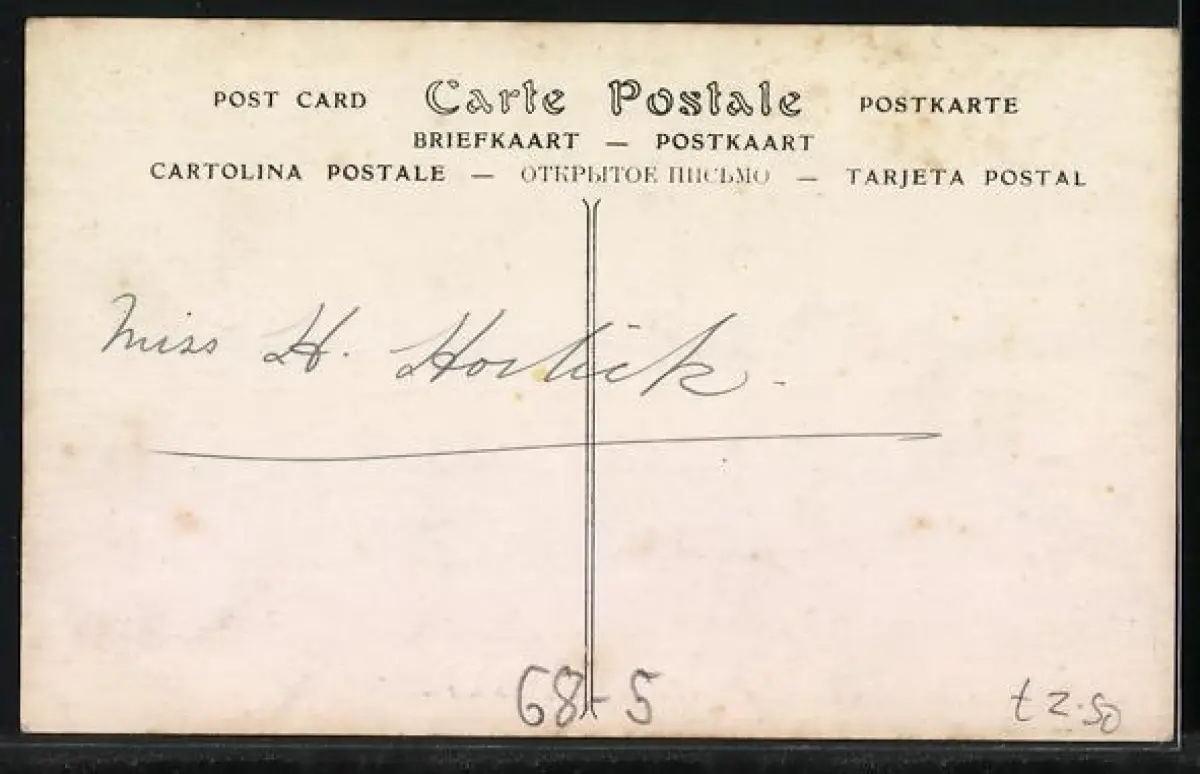 POST CARD Carte Postale POSTKARTE
BRIEFKAART — POSTKAART
CARTOLINA POSTALE — ОТКРЫТОЕ ПИСЬМО — TARJETA POSTAL
Miss H. Horlick.
68-5
t 2.50